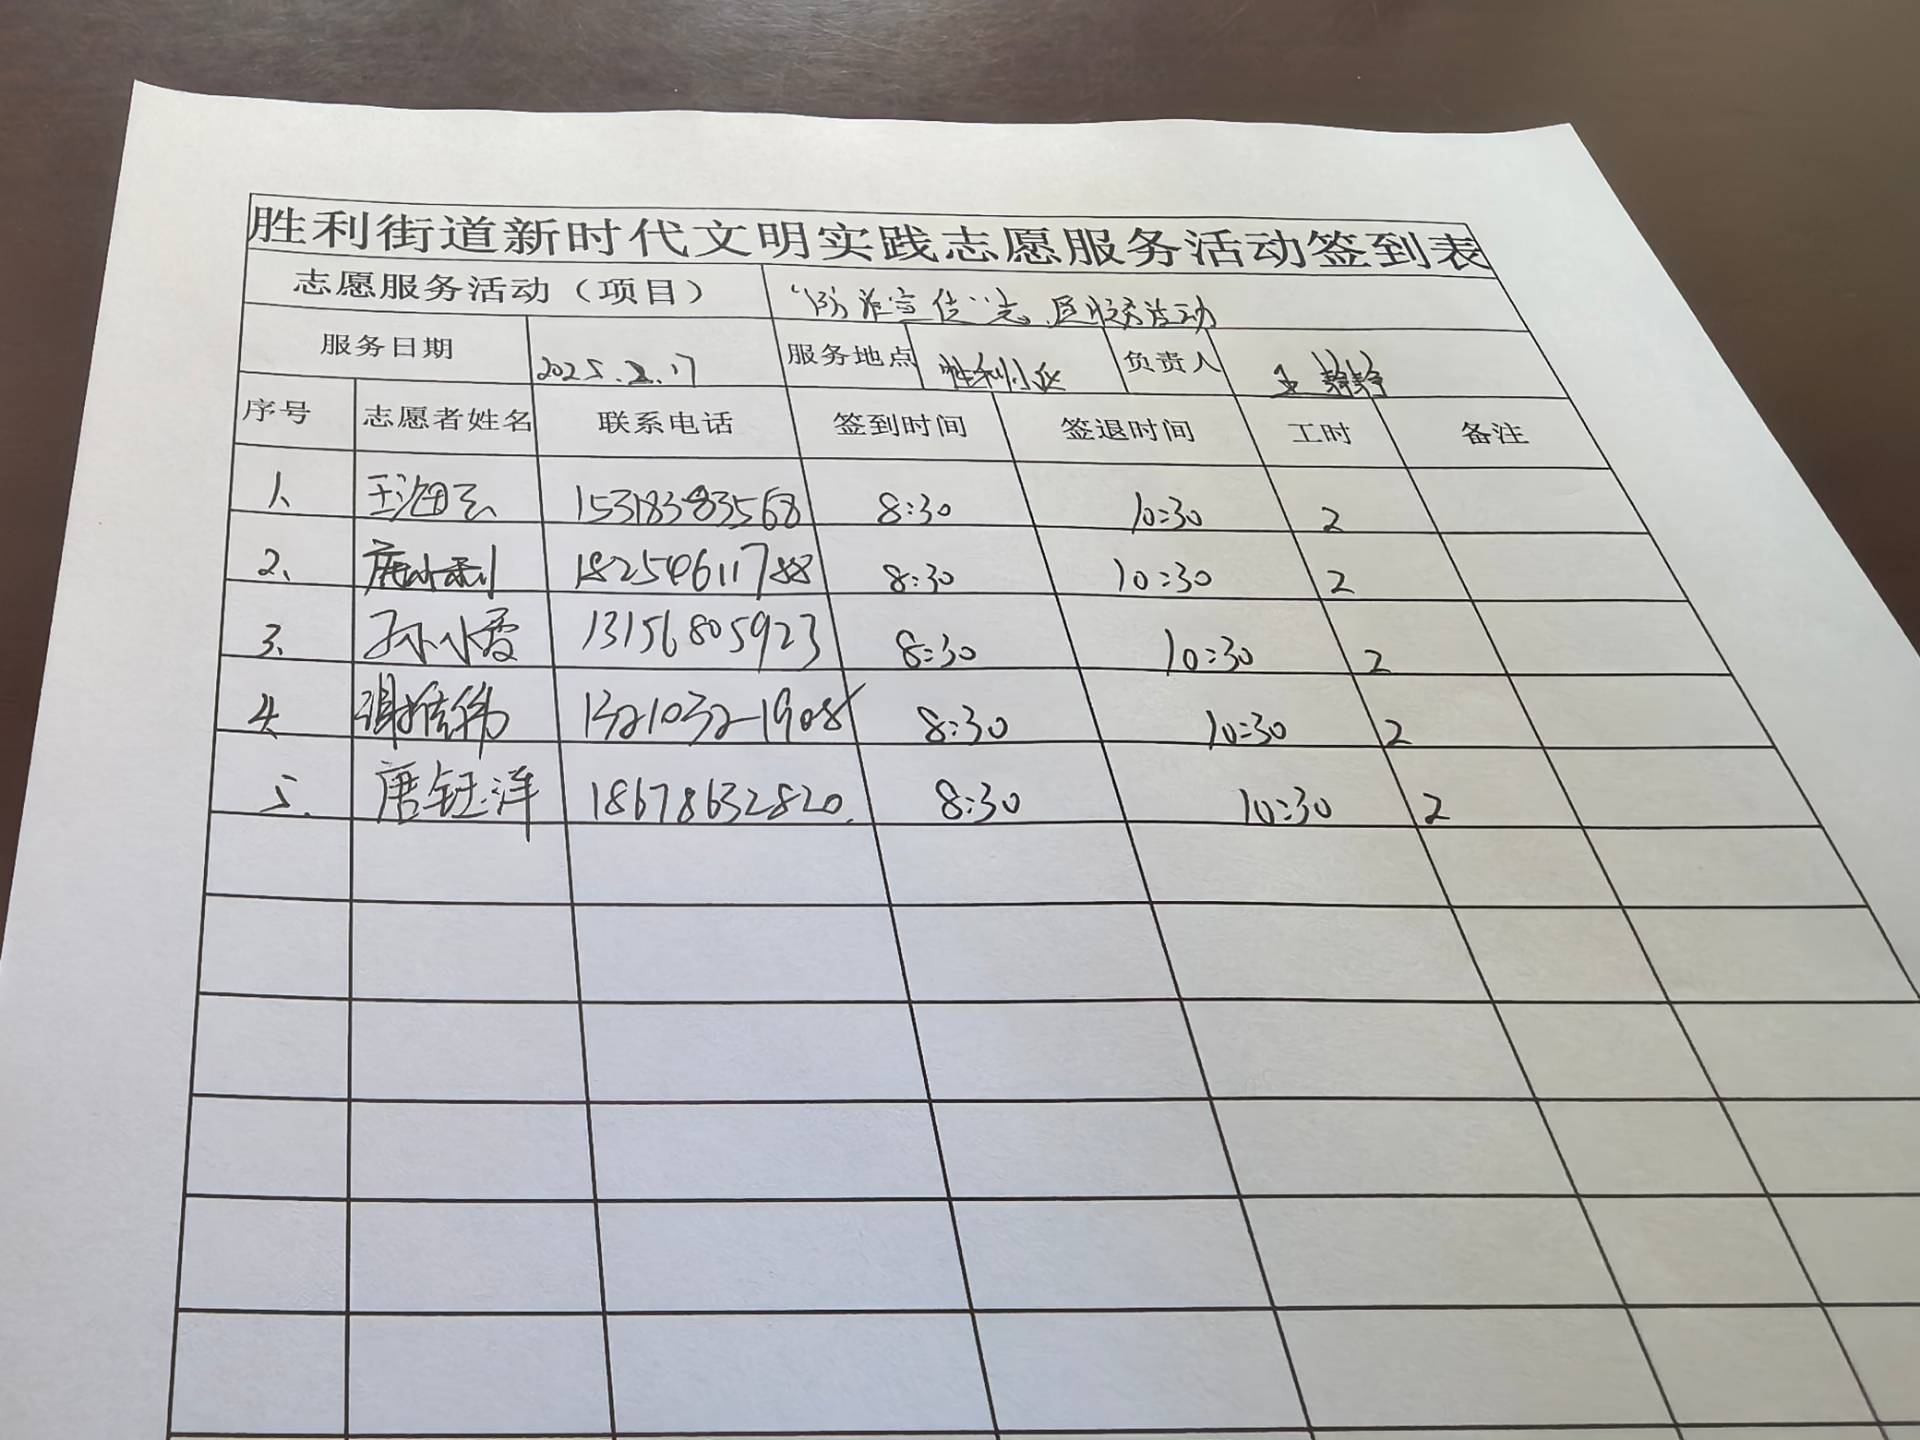 胜利街道新时代文明实践志愿服务活动签到表
志愿服务活动（项目） "防诈宣传"志愿服务活动
服务日期 2025.2.17 服务地点 胜利小区 负责人 王静静
序号 志愿者姓名 联系电话 签到时间 签退时间 工时 备注
1、 王海云 15318383568 8:30 10:30 2
2、 18254611788 8:30 10:30 2
3、 孙小霞 13156805923 8:30 10:30 2
4、 13210321908 8:30 10:30 2
5. 唐钰洋 18678632820. 8:30 10:30 2